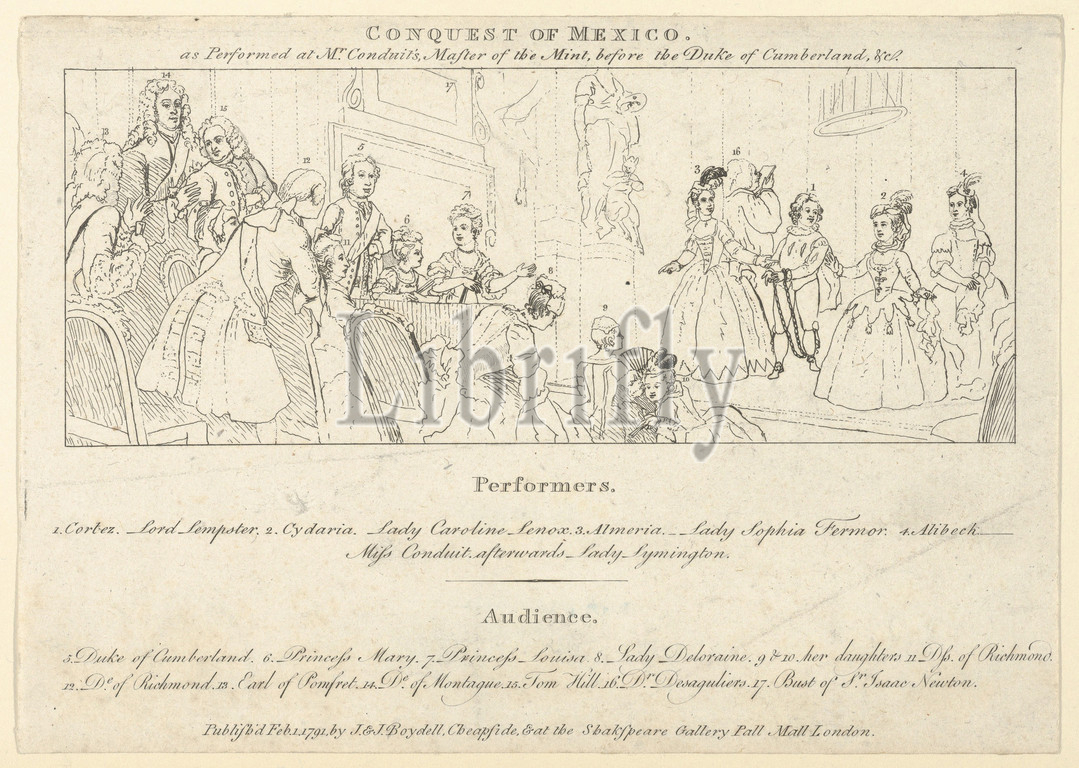 CONQUEST OF MEXICO.
as Performed at Mr. Conduit's, Master of the Mint, before the Duke of Cumberland, &c.
14
15
13
17
12
5
16
3
1
2
4
7
6
11
8
9
10
Librifly
Performers.
1. Cortez. Lord Lempster. 2. Cydaria. Lady Caroline Lenox. 3. Almeria. Lady Sophia Fermor. 4. Alibech
Miss Conduit, afterwards Lady Lymington.
Audience.
5. Duke of Cumberland. 6. Princess Mary. 7. Princess Louisa. 8. Lady Deloraine. 9 & 10. her daughters 11. Dss. of Richmond.
12. De. of Richmond. 13. Earl of Pomfret. 14. De. of Montague. 15. Tom Hill. 16. Dr. Desaguliers. 17. Bust of Sr. Isaac Newton.
Publish'd Feb. 1. 1791, by J. & J. Boydell, Cheapside, & at the Shakspeare Gallery Pall Mall London.